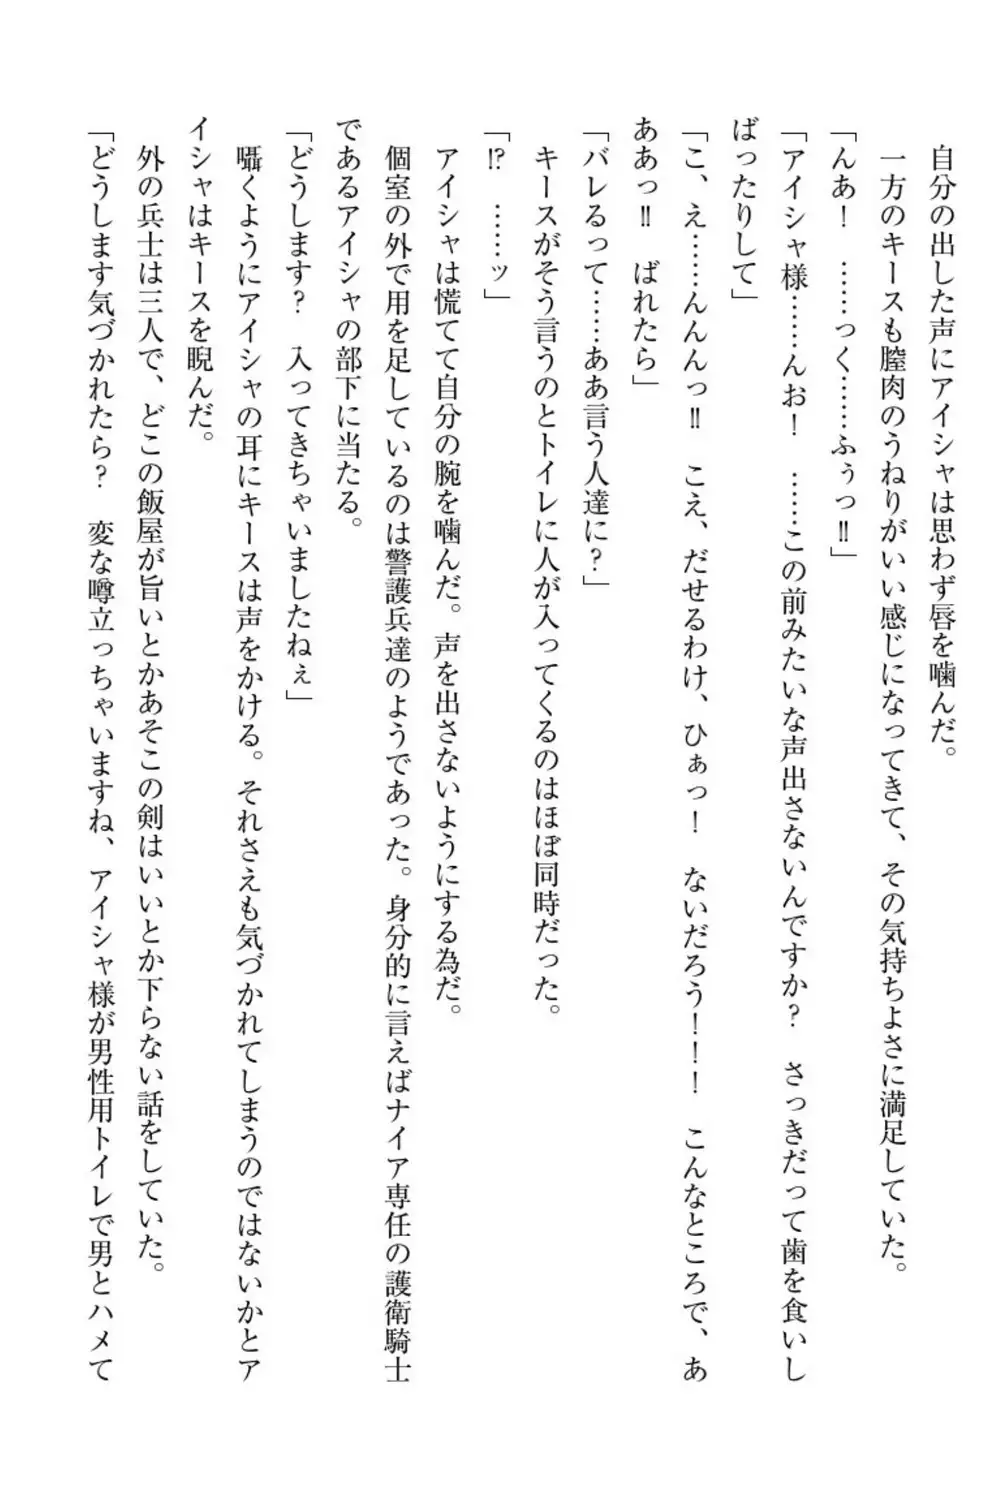 自分の出した声にアイシャは思わず唇を噛んだ。
一方のキースも膣肉のうねりがいい感じになってきて、その気持ちよさに満足していた。
「んあ！　……っく……ふぅっ‼」
「アイシャ様……んお！　……この前みたいな声出さないんですか？　さっきだって歯を食いし
ばったりして」
「こ、え……んんんっ‼　こえ、だせるわけ、ひぁっ！　ないだろう！！！　こんなところで、あ
ああっ‼　ばれたら」
「バレるって……ああ言う人達に？」
キースがそう言うのとトイレに人が入ってくるのはほぼ同時だった。
「⁉　……ッ」
アイシャは慌てて自分の腕を噛んだ。声を出さないようにする為だ。
個室の外で用を足しているのは警護兵達のようであった。身分的に言えばナイア専任の護衛騎士
であるアイシャの部下に当たる。
「どうします？　入ってきちゃいましたねぇ」
囁くようにアイシャの耳にキースは声をかける。それさえも気づかれてしまうのではないかとア
イシャはキースを睨んだ。
外の兵士は三人で、どこの飯屋が旨いとかあそこの剣はいいとか下らない話をしていた。
「どうします気づかれたら？　変な噂立っちゃいますね、アイシャ様が男性用トイレで男とハメて